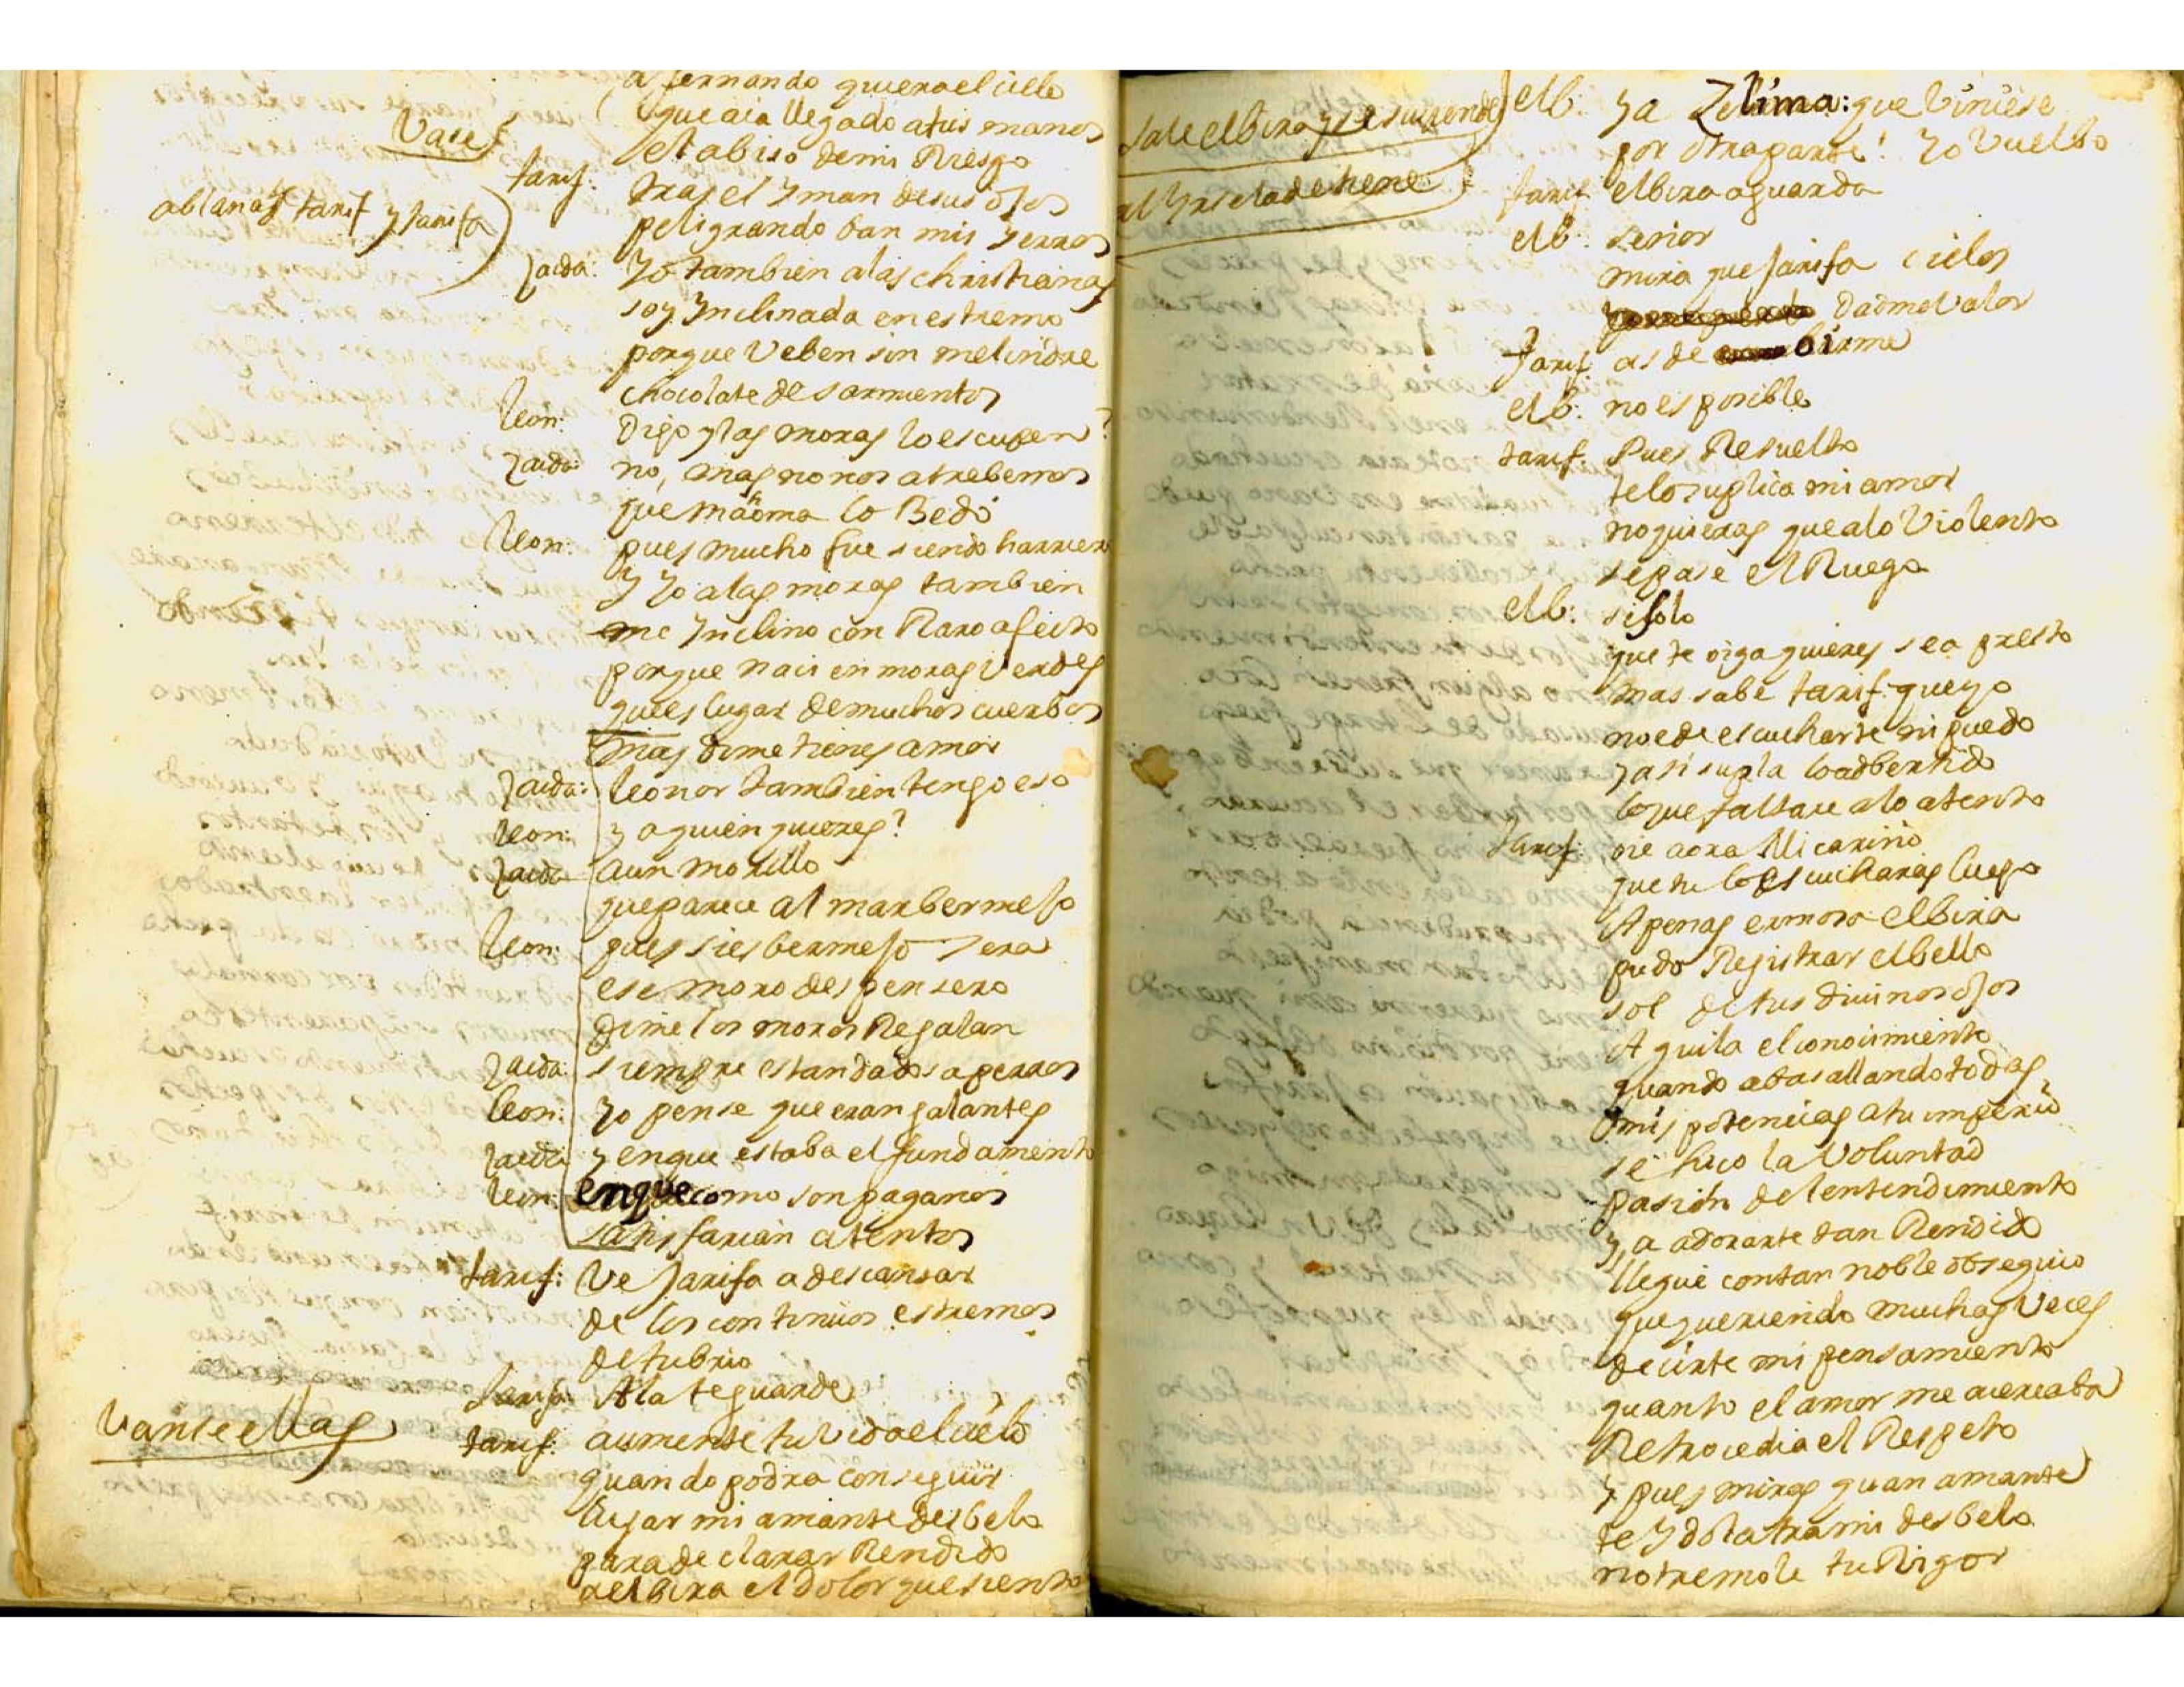 a fernando quiera el cielo
que aia llegado a tus manos
Vase
el abiso de mi Rriesgo
tarif: tras el Yman de sus ojos
ablan ap.s tarif y Jarifa
peligrando ban mis Yerros
Zaida: Yo tambien a las christianas
soy Ynclinada en estremo
porque Veben sin melindre
chocolate de sarmientos
leon: Digo y las moras lo escupen?
Zaida: no, mas no nos atrebemos
que mäoma lo Bedó
leon: pues mucho fue siendo harriero
Y Yo a las moras tambien
me Ynclino con Raro afecto
porque naci en moras Verdes
que es lugar de muchos cuerbos
mas dime tienes amor
Zaida: leonor tambien tengo eso
leon: y a quien quieres?
Zaida a un morillo
que parece al mar bermejo
leon: pues si es bermejo sera
ese moro despensero
dime los moros Regalan
Zaida: siempre estan dados a perros
leon: Yo pense que eran galantes
Zaida y en que estaba el fundamento
leon: en que como son paganos
satisfarian atentos
tarif: Ve Jarifa a descansar
de los continuos estremos
de tu brio
Jarifa: Ala te guarde
Vanse ellas
tarif: aumente tu vida el cielo
quando podra conseguir
lugar mi amante desbelo
para declarar Rendido
a elbira el dolor que siento
Sale elbira y se suspende
elb: Ya Zelima: que biniese
por otra parte! Yo Vuelbo
al Yrse la detiene
tarif elbira aguarda
elb: señor
mira que Jarifa cielos
dadme Valor
Tarif as de oirme
elb: no es posible
tarif. Pues Resuelto
te lo suplica mi amor
no quieras que a lo Violento
se pase el Ruego
elb: si solo
que te oiga quieres sea presto
mas sabe tarif: que yo
no e de escucharte ni puedo
y asi supla lo adbertido
lo que faltare a lo atento
tarif: oie aora Mi cariño
que tu lo escucharas luego
Apenas ermosa elbira
pudo Registrar el bello
sol de tus diuinos ojos
Aguila el conocimiento
quando abasallando todas
mis potencias a tu imperio
se hiço la Voluntad
pasion del entendimiento
y, a adorarte tan Rendido
llegue con tan noble obsequio
que queriendo muchas Veces
decirte mi pensamiento
quanto el amor me acercaba
Retrocedia el Respeto
Y pues miras quan amante
te Ydolatra mi desbelo
no tremole tu Rigor